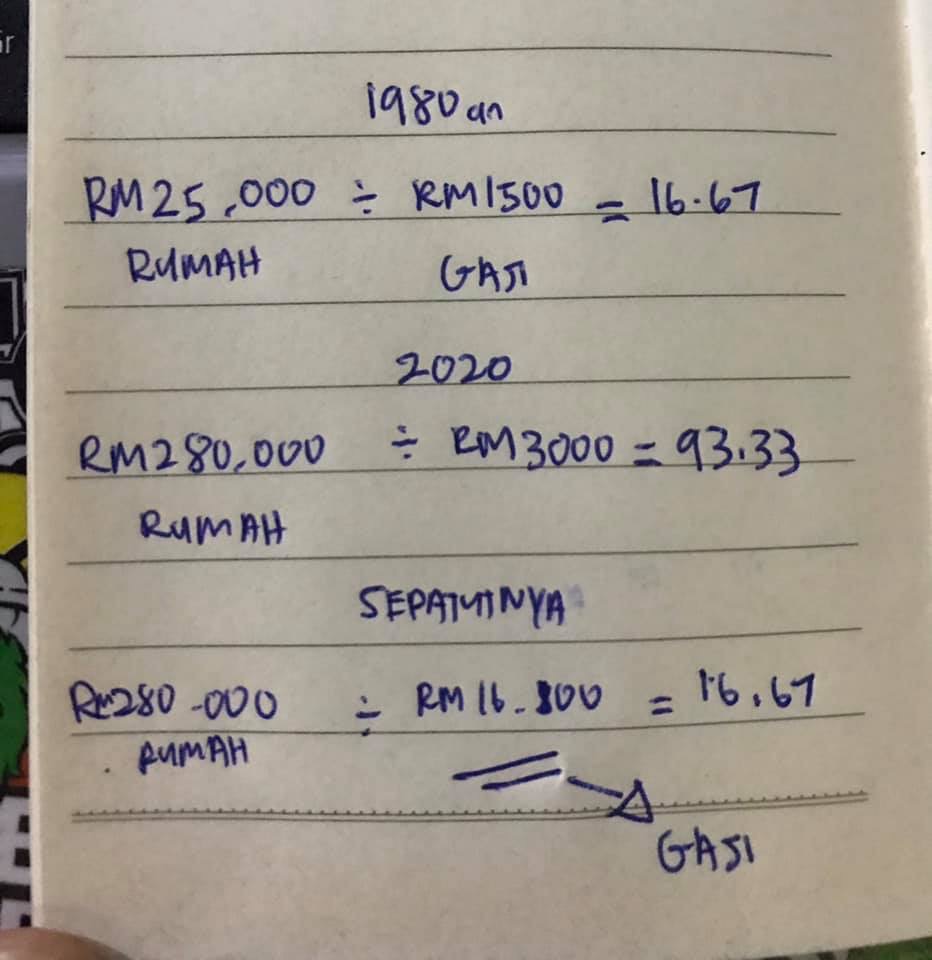 1980 an
RM25,000 ÷ RM1500 = 16.67
RUMAH GAJI
2020
RM280,000 ÷ RM3000 = 93.33
RUMAH
SEPATUTNYA
RM280.000 ÷ RM16.800 = 16.67
RUMAH
GAJI